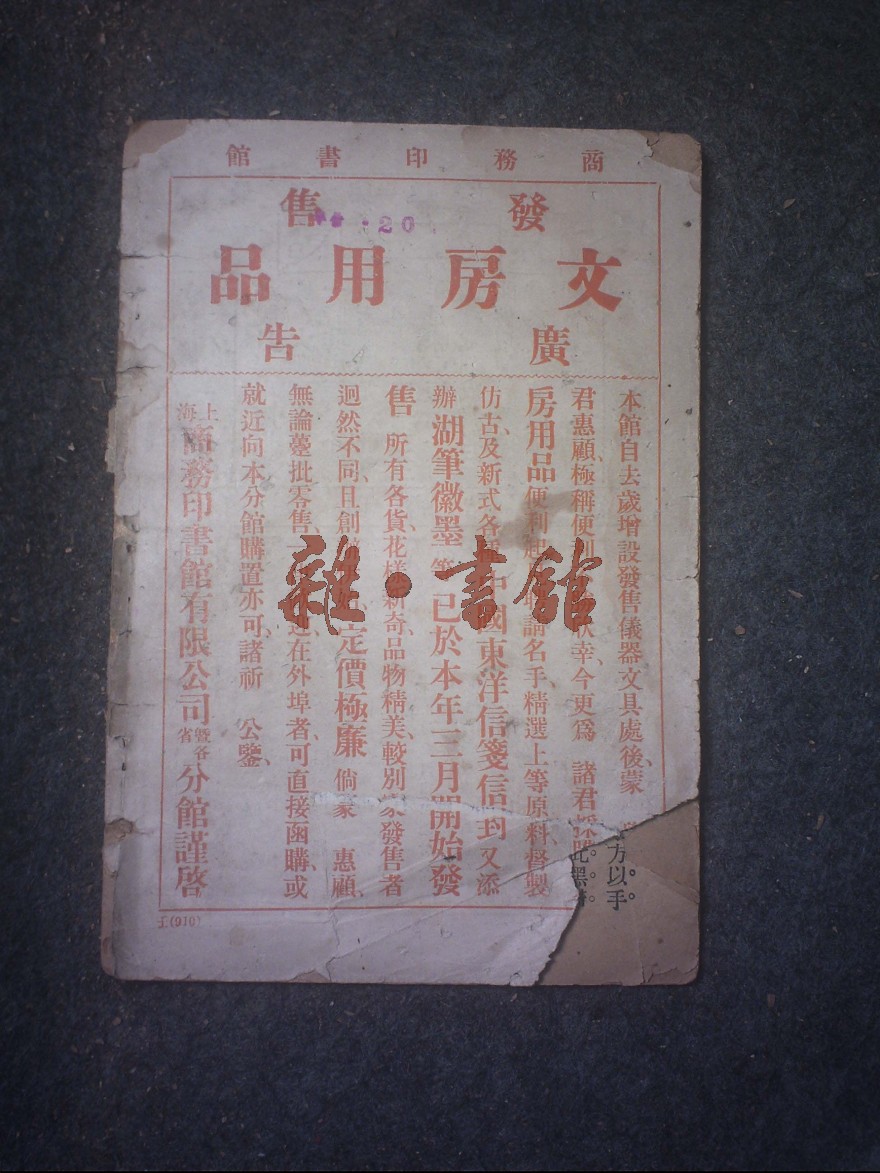 商務印書館
發售
20
文房用品
廣告
本館自去歲增設發售儀器文具處後、蒙
君惠顧、極稱便利 幸、今更爲 諸君採
房用品 便利起 請名手、精選上等原料、督製
仿古、及新式各 中國東洋信箋信封 又添
辦 湖筆徽墨 等 已於本年三月開始發
售 所有各貨、花樣新奇、品物精美、較別家發售者
迥然不同、且創 定價極廉 倘蒙 惠顧、
無論躉批零售、 在外埠者、可直接函購、或
就近向本分館購置亦可、諸祈 公鑒、
上海商務印書館有限公司暨各省分館謹啓
方以手。
壬(910)
雜·書館